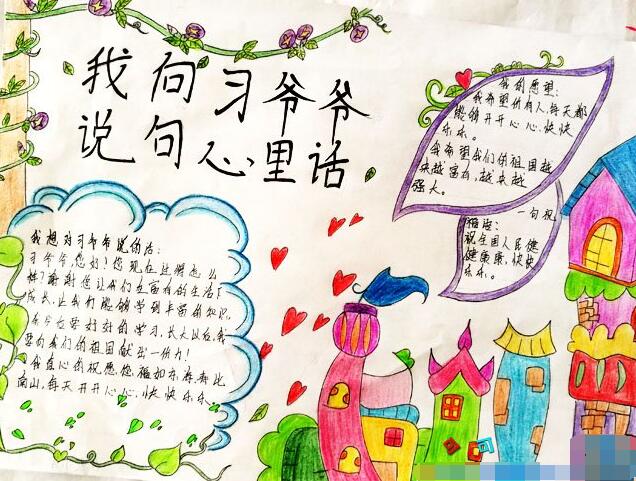 我向习爷爷
说句心里话
我的愿望:
我希望所有人每天都
能够开开心心、快快
乐乐。
我希望我们的祖国越
来越富有,越来越
强大。
一句祝
福语:
祝全国人民健
健康康,快快
乐乐。
我想对习爷爷说的话:
习爷爷,您好!您现在过得怎么
样?谢谢您让我们在富有的生活下
成长,让我们能够学到丰富的知识,
要好好的学习,长大以后,我
要为我们的祖国献出一份力!
我在心的祝愿您福如东海寿比
南山,每天开开心心、快快乐乐。